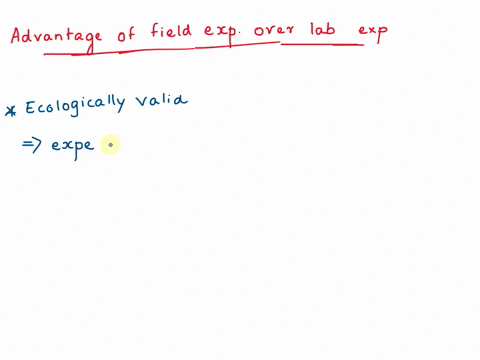 Advantage of field exp. over lab exp
* Ecologically valid
=> expe